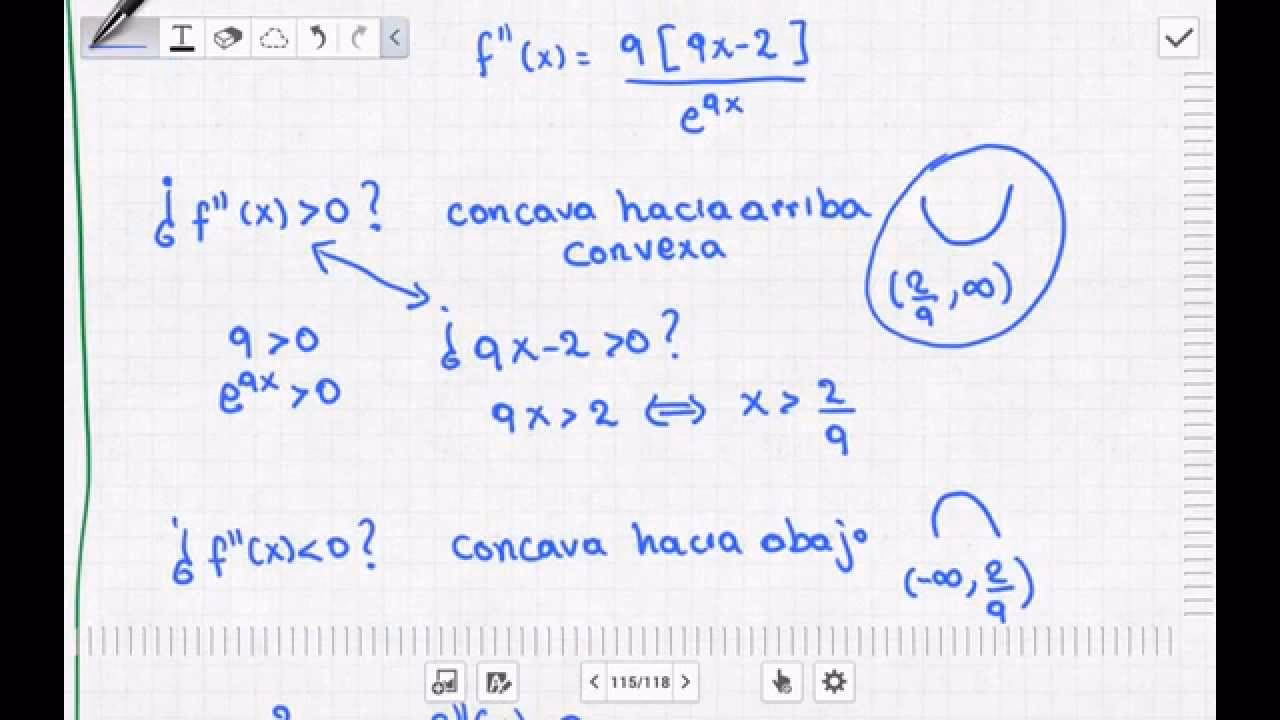 T
f''(x) = 9[9x-2] / e^{9x}
¿f''(x) > 0? concava hacia arriba
convexa
(2/9, ∞)
9 > 0
e^{9x} > 0
¿9x-2 > 0?
9x > 2 ⟺ x > 2/9
¿f''(x) < 0? concava hacia abajo
(-∞, 2/9)
115/118